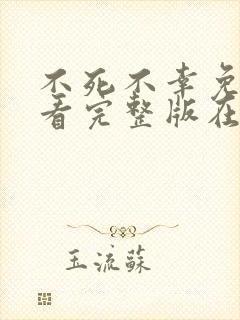 不死不幸免
看完整版在
玉流苏